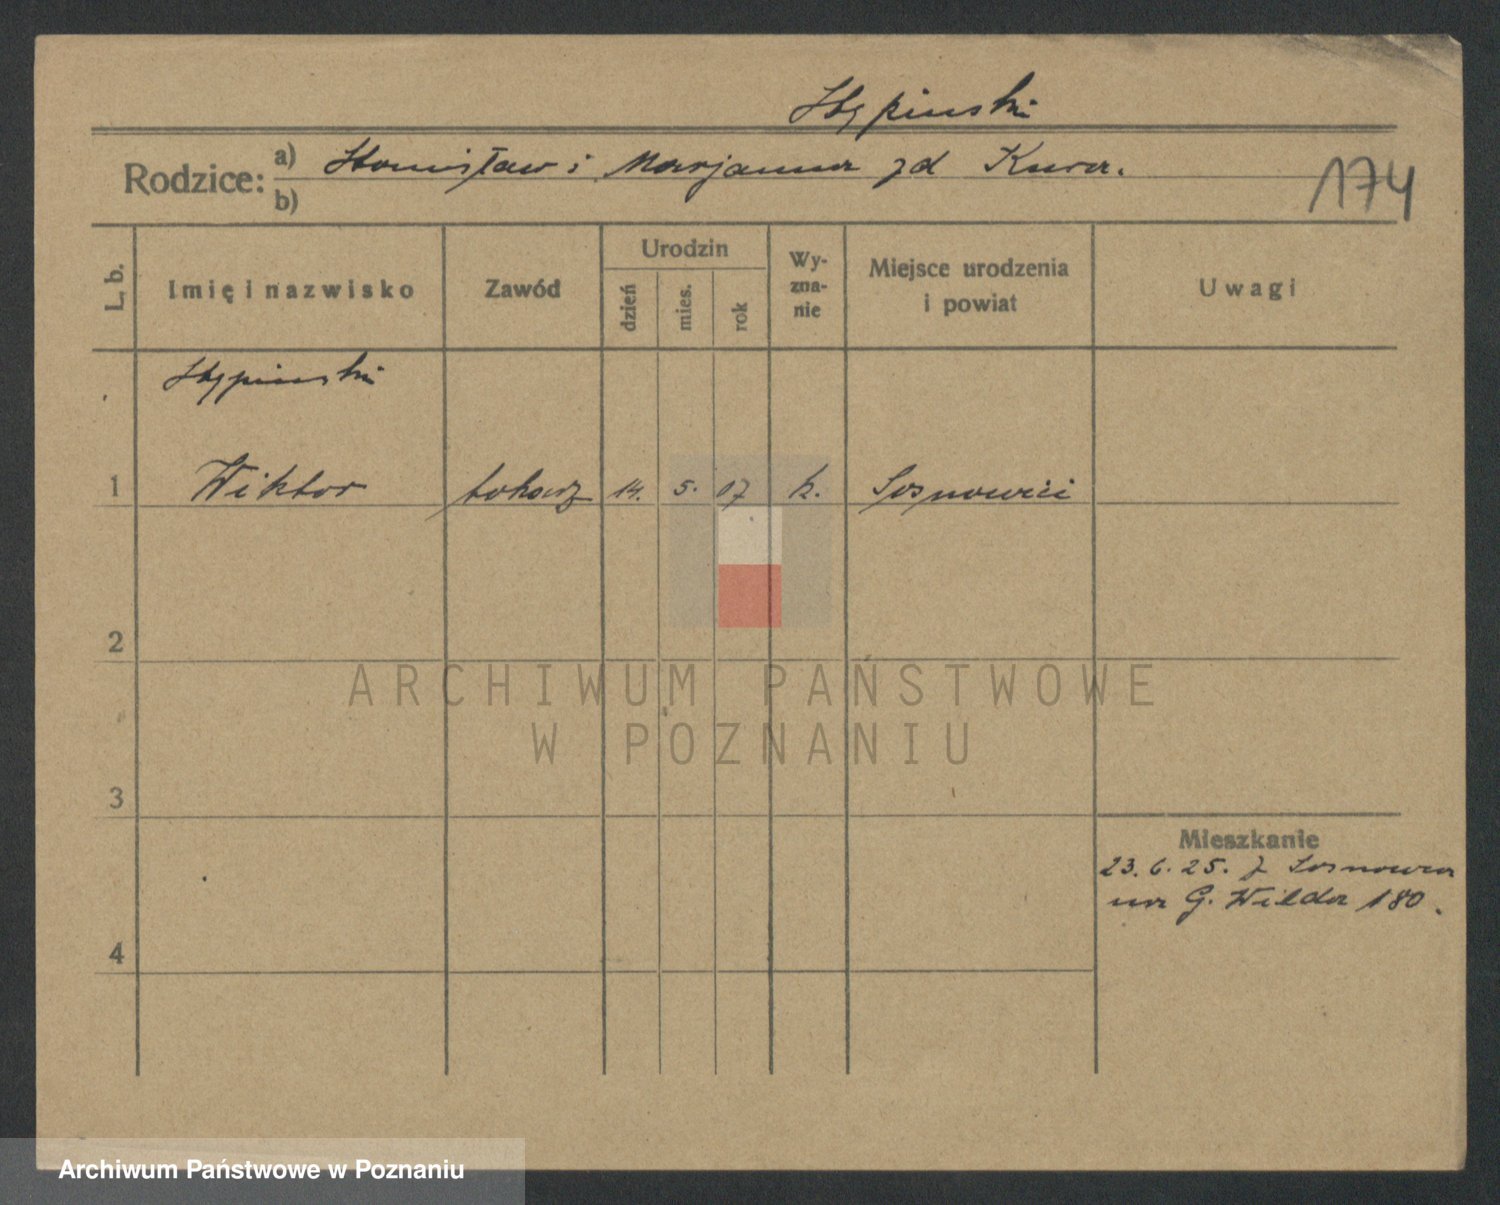 Stypinski
Rodzice: a) Stanisław i Marjanna zd Kura.
b)
174
L. b. Imię i nazwisko Zawód Urodzin dzień mies. rok Wyznanie Miejsce urodzenia i powiat Uwagi
Stypinski
1 Wiktor tokarz 14. 5. 07 k. Sosnowici
2
3
4
Mieszkanie
23. 6. 25. z Sosnowca
na G. Wilda 180.
ARCHIWUM PAŃSTWOWE
W POZNANIU
Archiwum Państwowe w Poznaniu